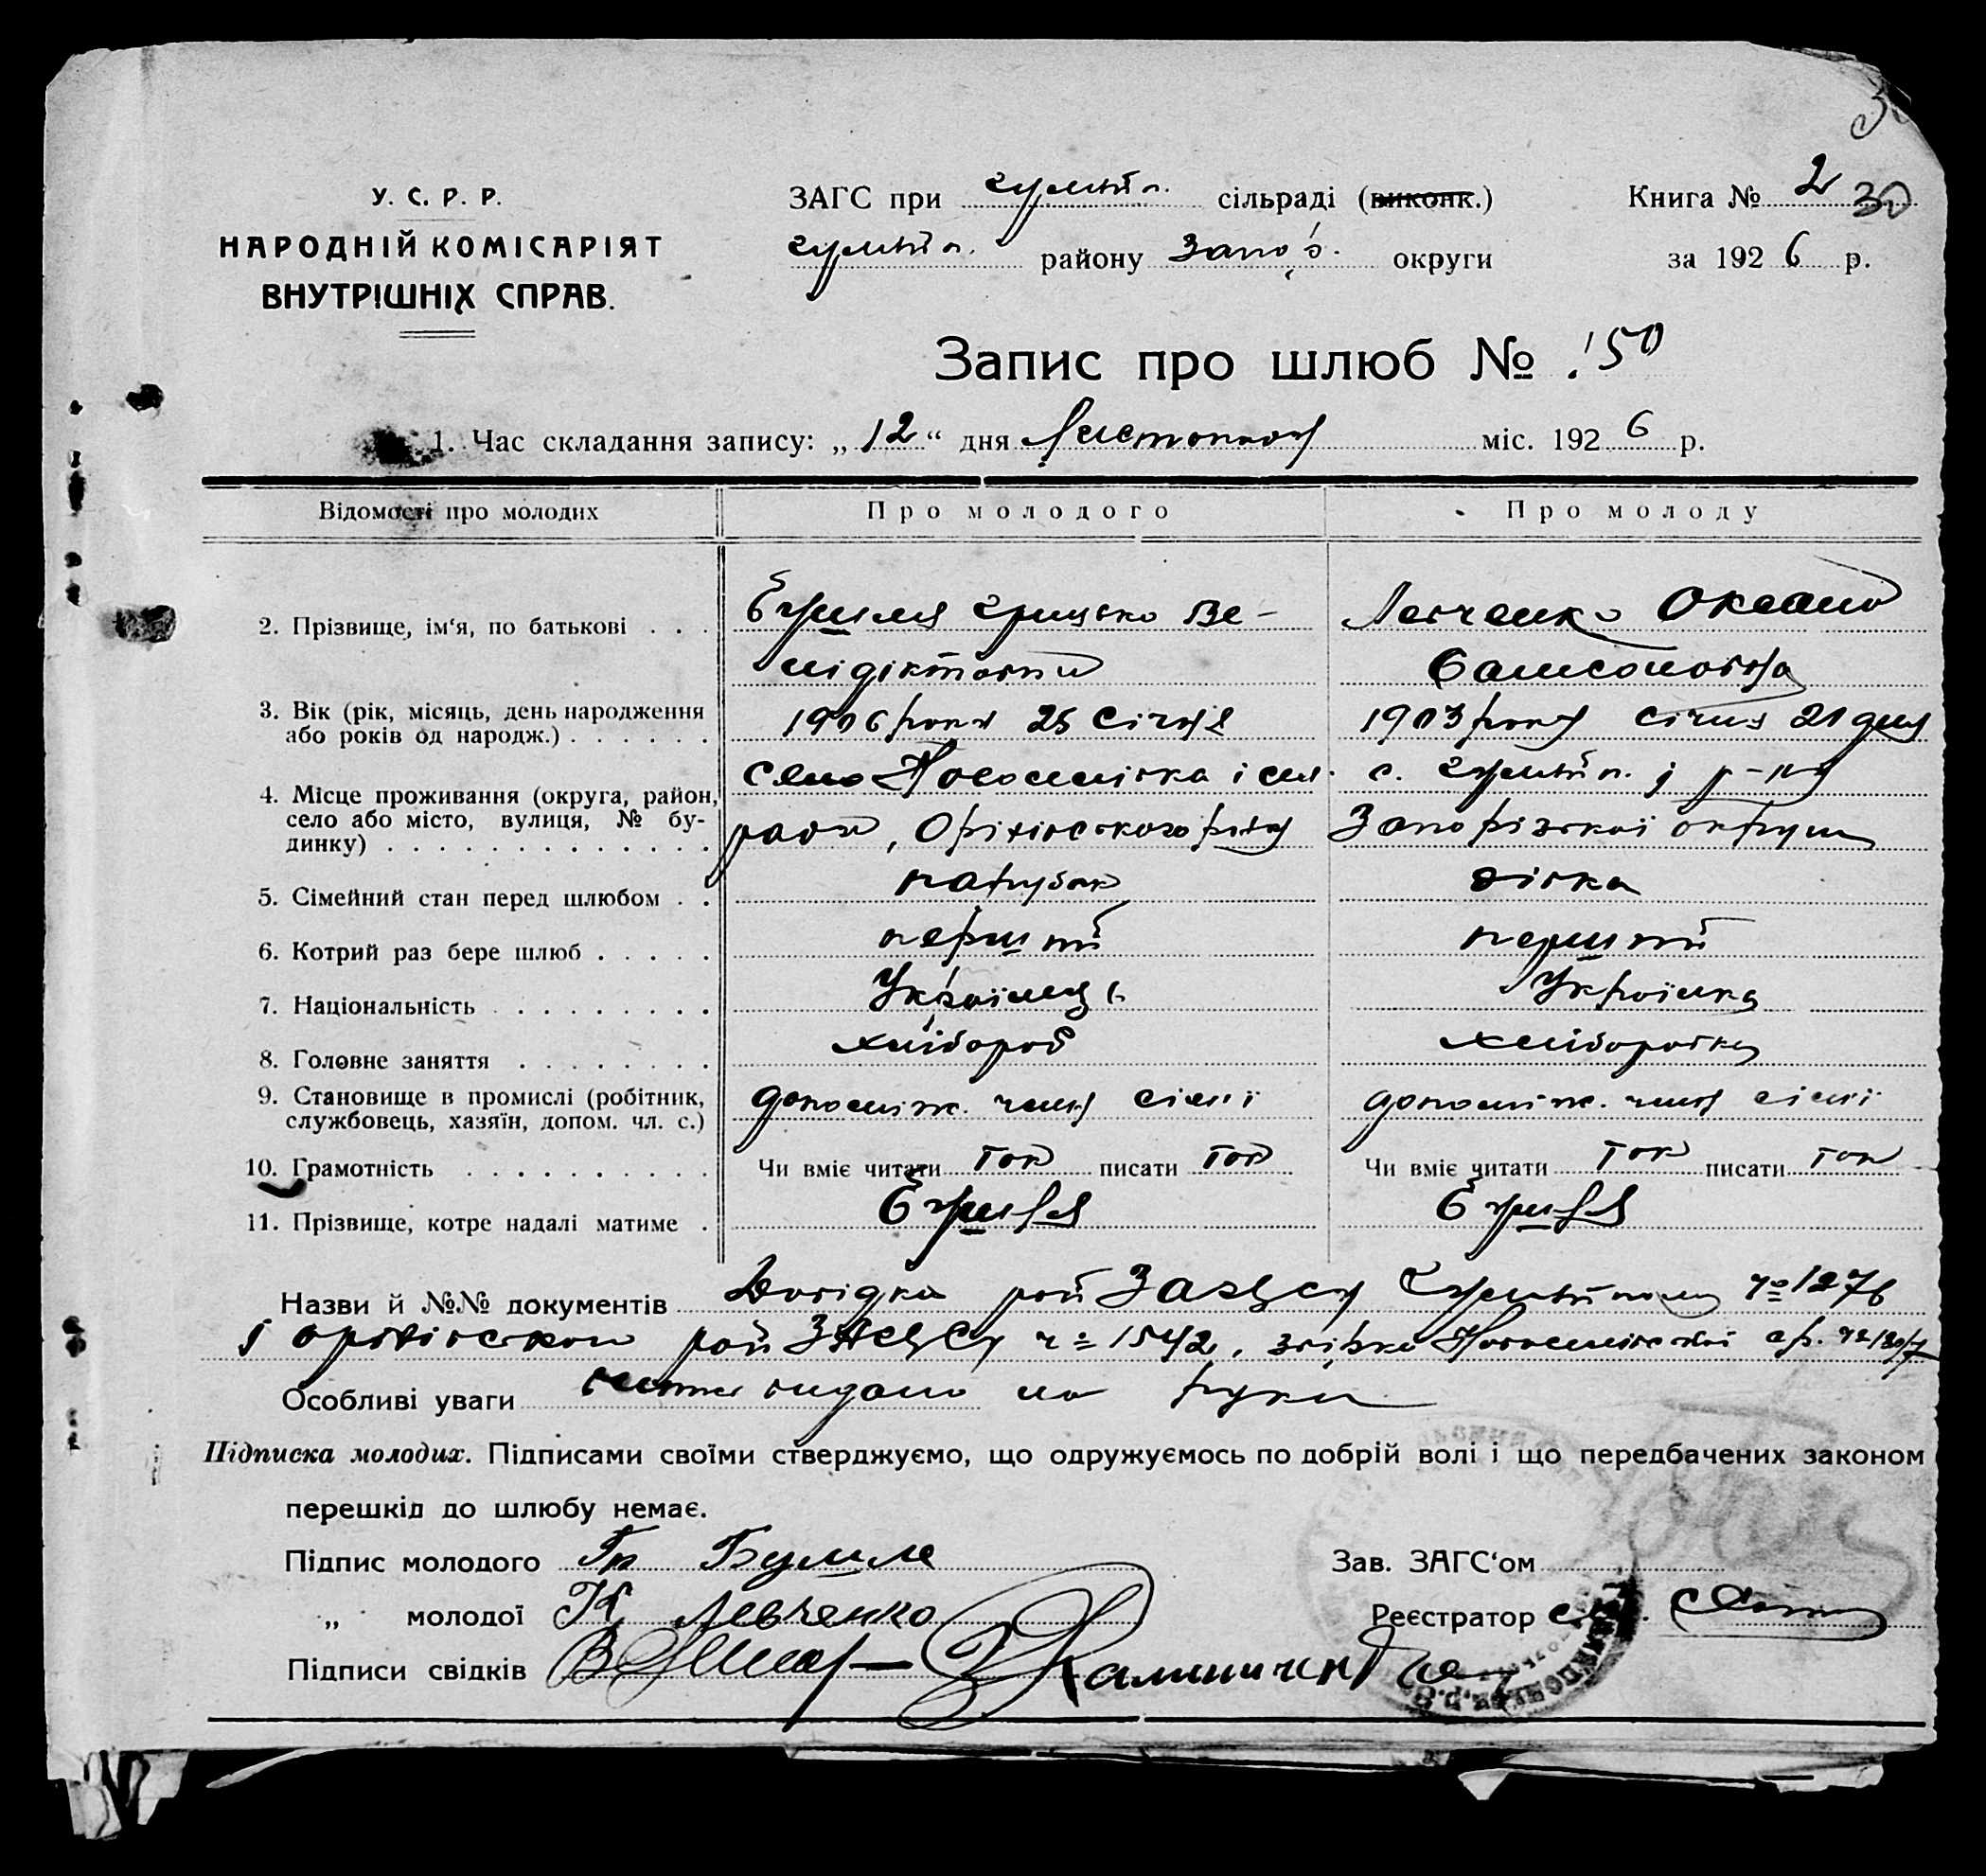 30
У. С. Р. Р.
НАРОДНІЙ КОМІСАРІЯТ
ВНУТРІШНІХ СПРАВ.
ЗАГС при гуляйп. сільраді (виконк.)
гуляйп. району Запоріз. округи
Книга № 2
за 1926 р.
Запис про шлюб № 150
1. Час складання запису: „12“ дня Листопада міс. 1926 р.
Відомості про молодих
Про молодого
Про молоду
2. Прізвище, ім'я, по батькові . . .
Грицько Ве-
нідіктович
Левченко
Самсоновна
3. Вік (рік, місяць, день народження
або років од народж.) . . . . . .
1906 року 25 Січня
1903 року січня 21 дня
4. Місце проживання (округа, район,
село або місто, вулиця, № бу-
динку) . . . . . . . . . . . . .
Село Новоселівка і сіль
ради, Оріхівського р-ну
с. гуляйп. і р-ну
Запорізької округи
5. Сімейний стан перед шлюбом . .
парубок
дівка
6. Котрий раз бере шлюб . . . . .
перший
перший
7. Національність . . . . . . . .
Українець
Українка
8. Головне заняття . . . . . . . .
хлібороб
хліборобка
9. Становище в промислі (робітник,
службовець, хазяїн, допом. чл. с.)
допоміж. член сімї
допоміж. член сімї
10. Грамотність . . . . . . . . . .
Чи вміє читати так писати так
Чи вміє читати так писати так
11. Прізвище, котре надалі матиме .
Назви й №№ документів Довідка рай ЗАГСу Гуляйполя № 1276
і оріхівского рай ЗАГСу № 1542, Новоселівської
Особливі уваги видано на руки
Підписка молодих. Підписами своїми стверджуємо, що одружуємось по добрій волі і що передбачених законом
перешкід до шлюбу немає.
Підпис молодого Гр
„ молодої К Левченко
Підписи свідків Калиниченко
Зав. ЗАГС'ом
Реєстратор